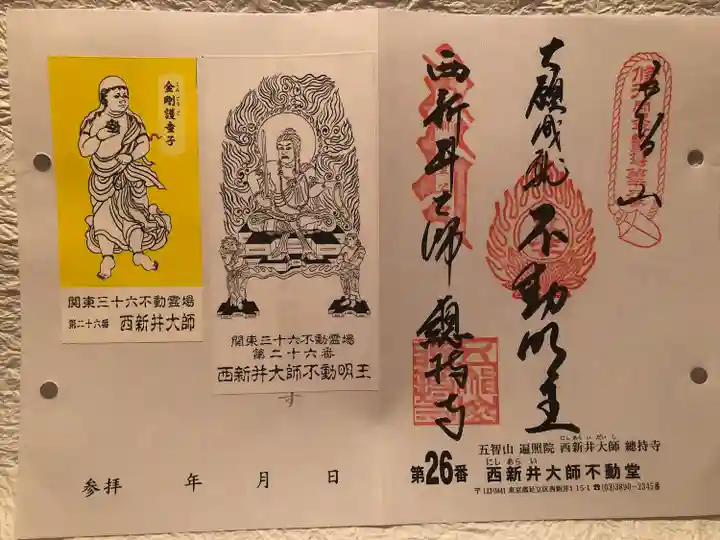 金剛護童子
こんごうごどうじ
関東三十六不動霊場
第二十六番 西新井大師
関東三十六不動霊場
第二十六番
西新井大師不動明王
す
参拝 年 月 日
五智山
大願成就 不動明王
西新井大師 總持寺
五智山 遍照院 西新井大師 總持寺
にしあらいだいし
第26番 西新井大師不動堂
にしあらい
東京都足立区西新井1-15-1 ☎(03)3890-2345番